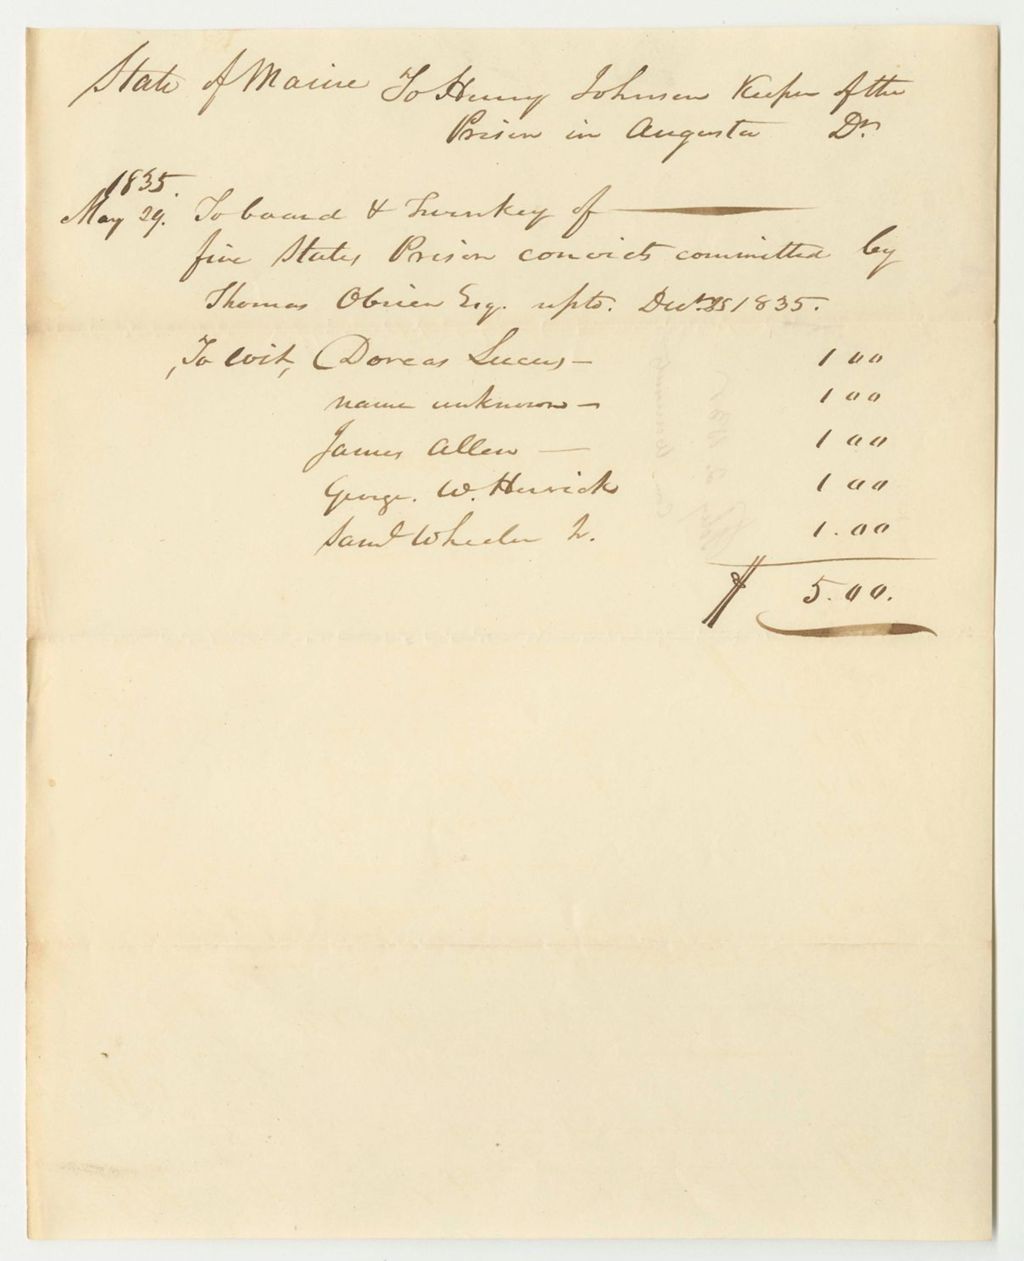 State of Maine To Henry Johnson Keeper of the
Prison in Augusta Dr.
1835.
May 29. To board & Turnkey of
five States Prison convicts committed by
Thomas Obrien Esq. upto. Dect. 25 1835.
To wit, Dorcas Lucus — 1 00
name unknown — 1 00
James Allen — 1 00
George. W. Herrick 1 00
Saml Wheeler 2. 1.00
$ 5.00.